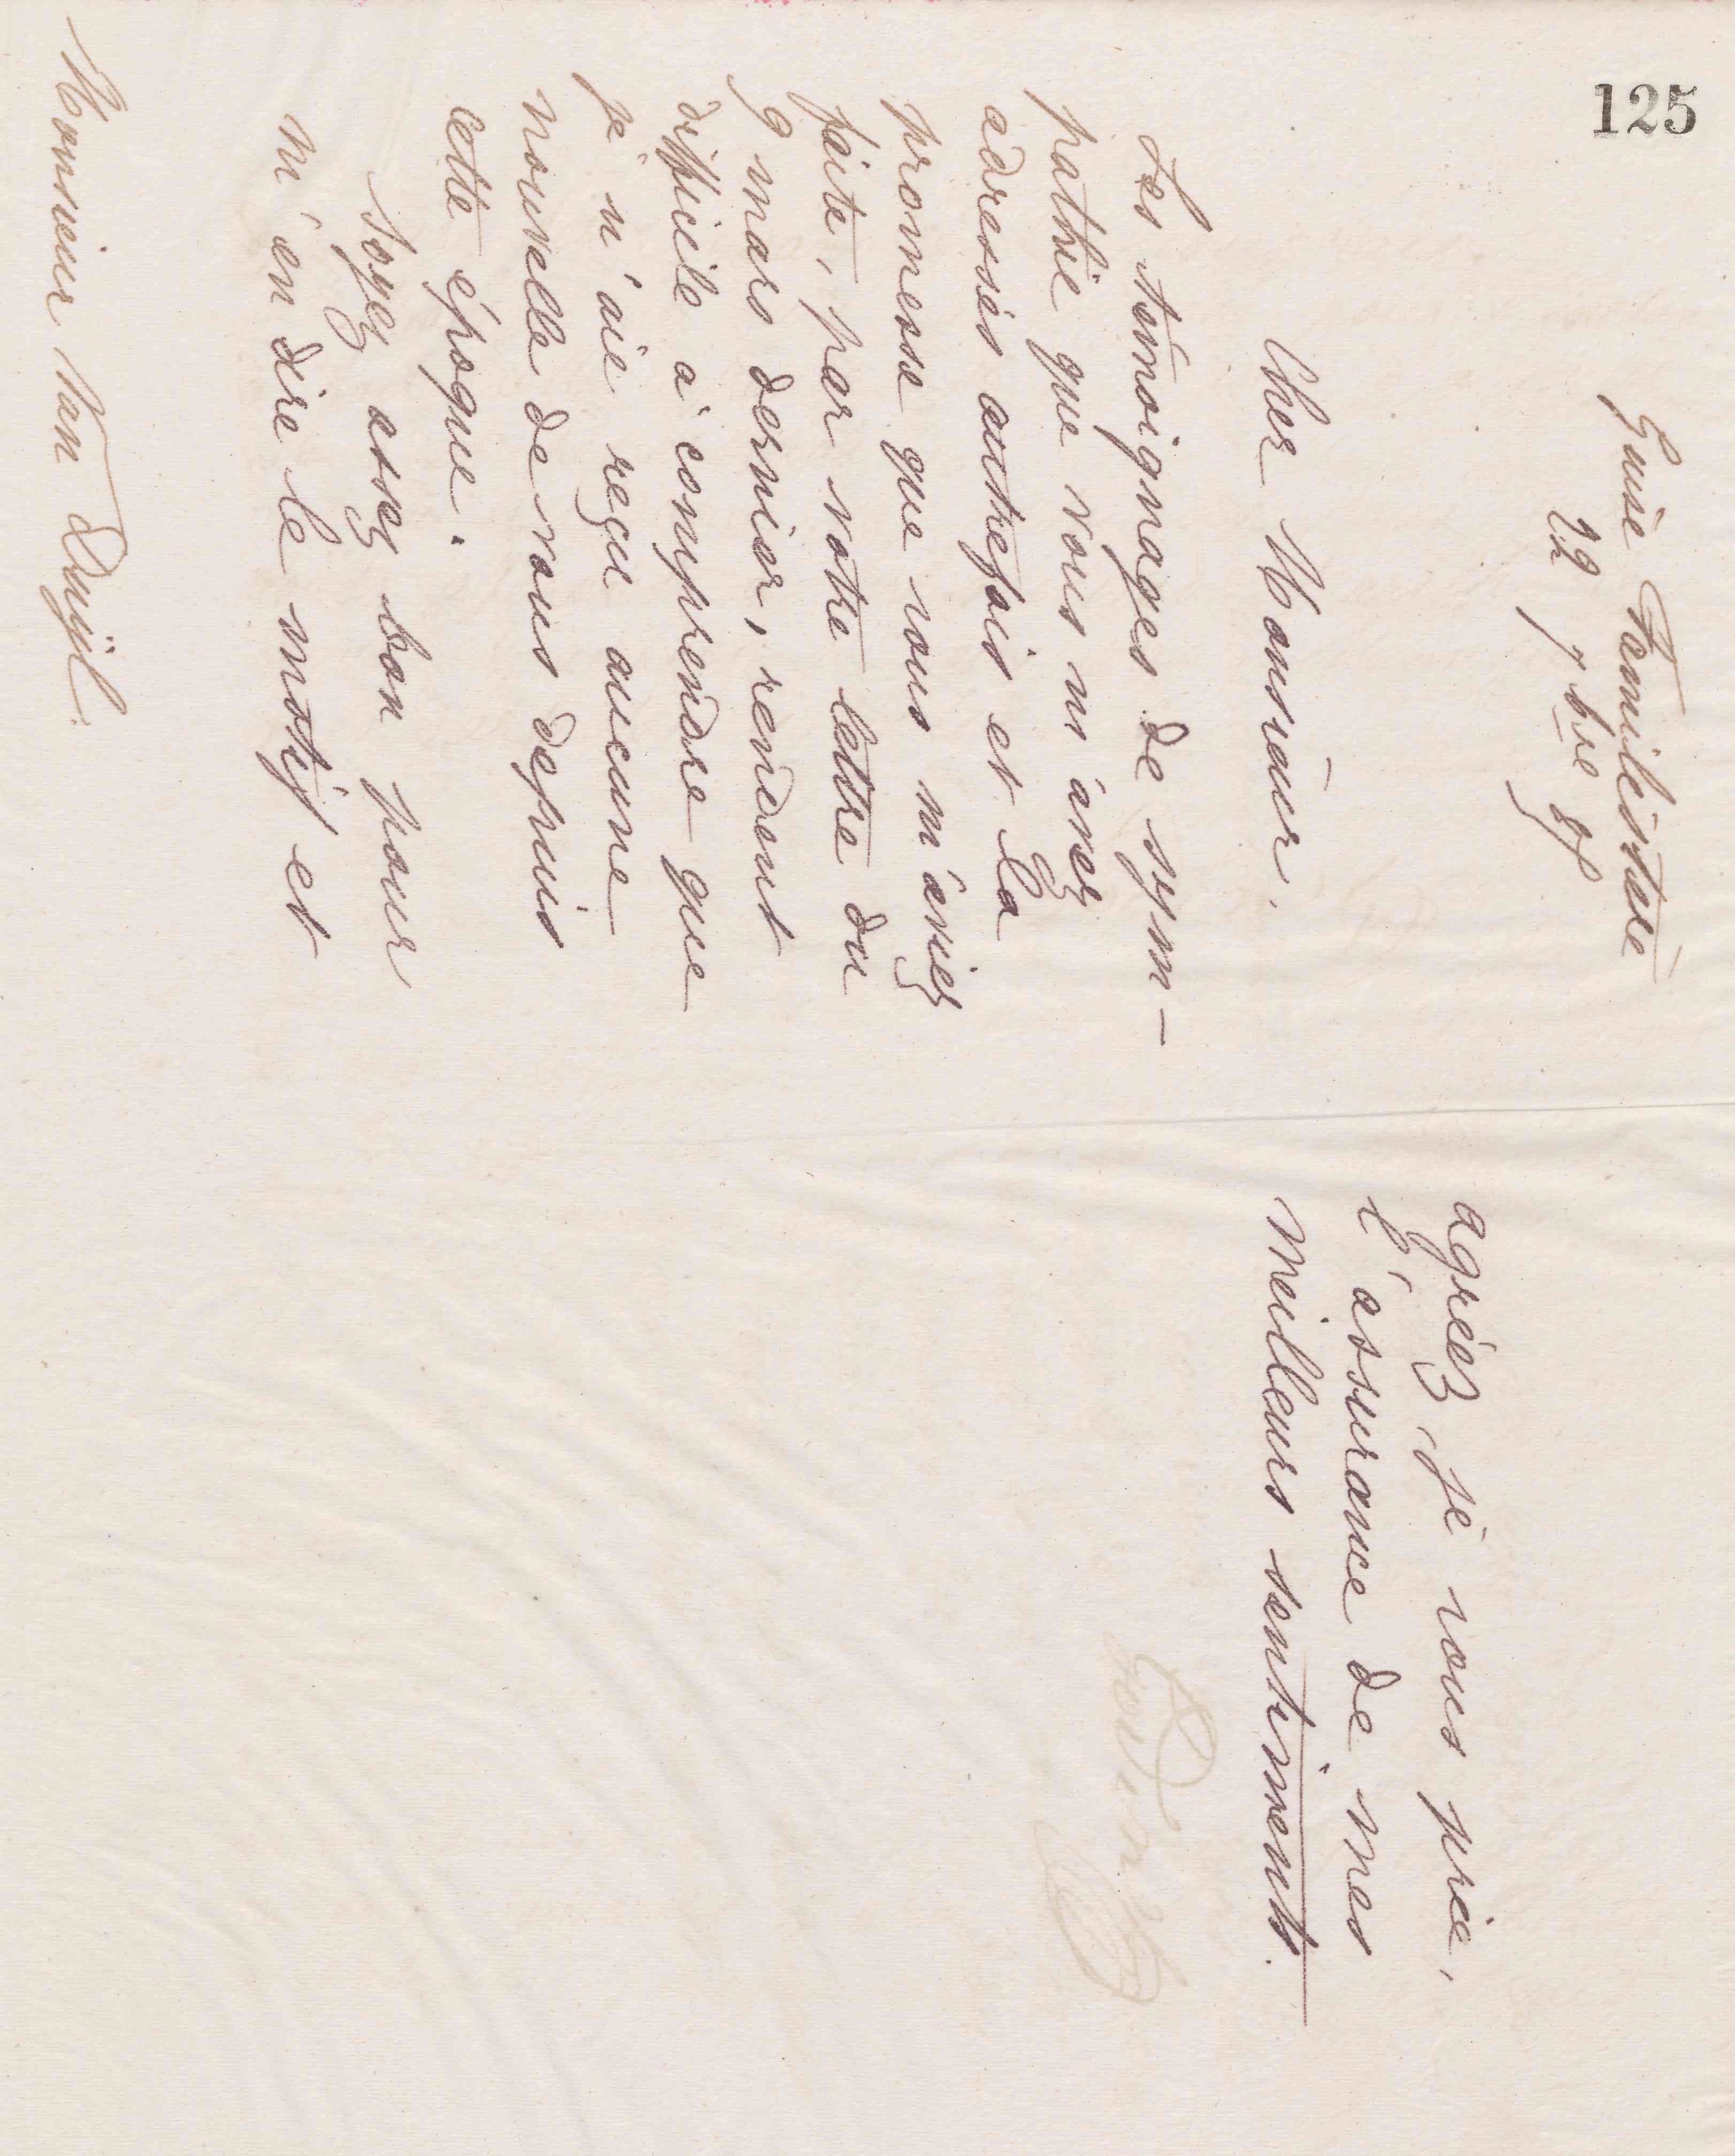 125
Guise Familistère
22 7bre 87
Cher Monsieur,
Les témoignages de sym-
pathie que vous m'avez
adressés autrefois et la
promesse que vous m'aviez
faite, par votre lettre du
9 mars dernier, rendent
difficile à comprendre que
je n'aie reçu aucune
nouvelle de vous depuis
cette époque.
Soyez assez bon pour
m'en dire le motif et
Monsieur Van Duyl.
agréez, je vous prie,
l'assurance de mes
meilleurs sentiments.
Godin